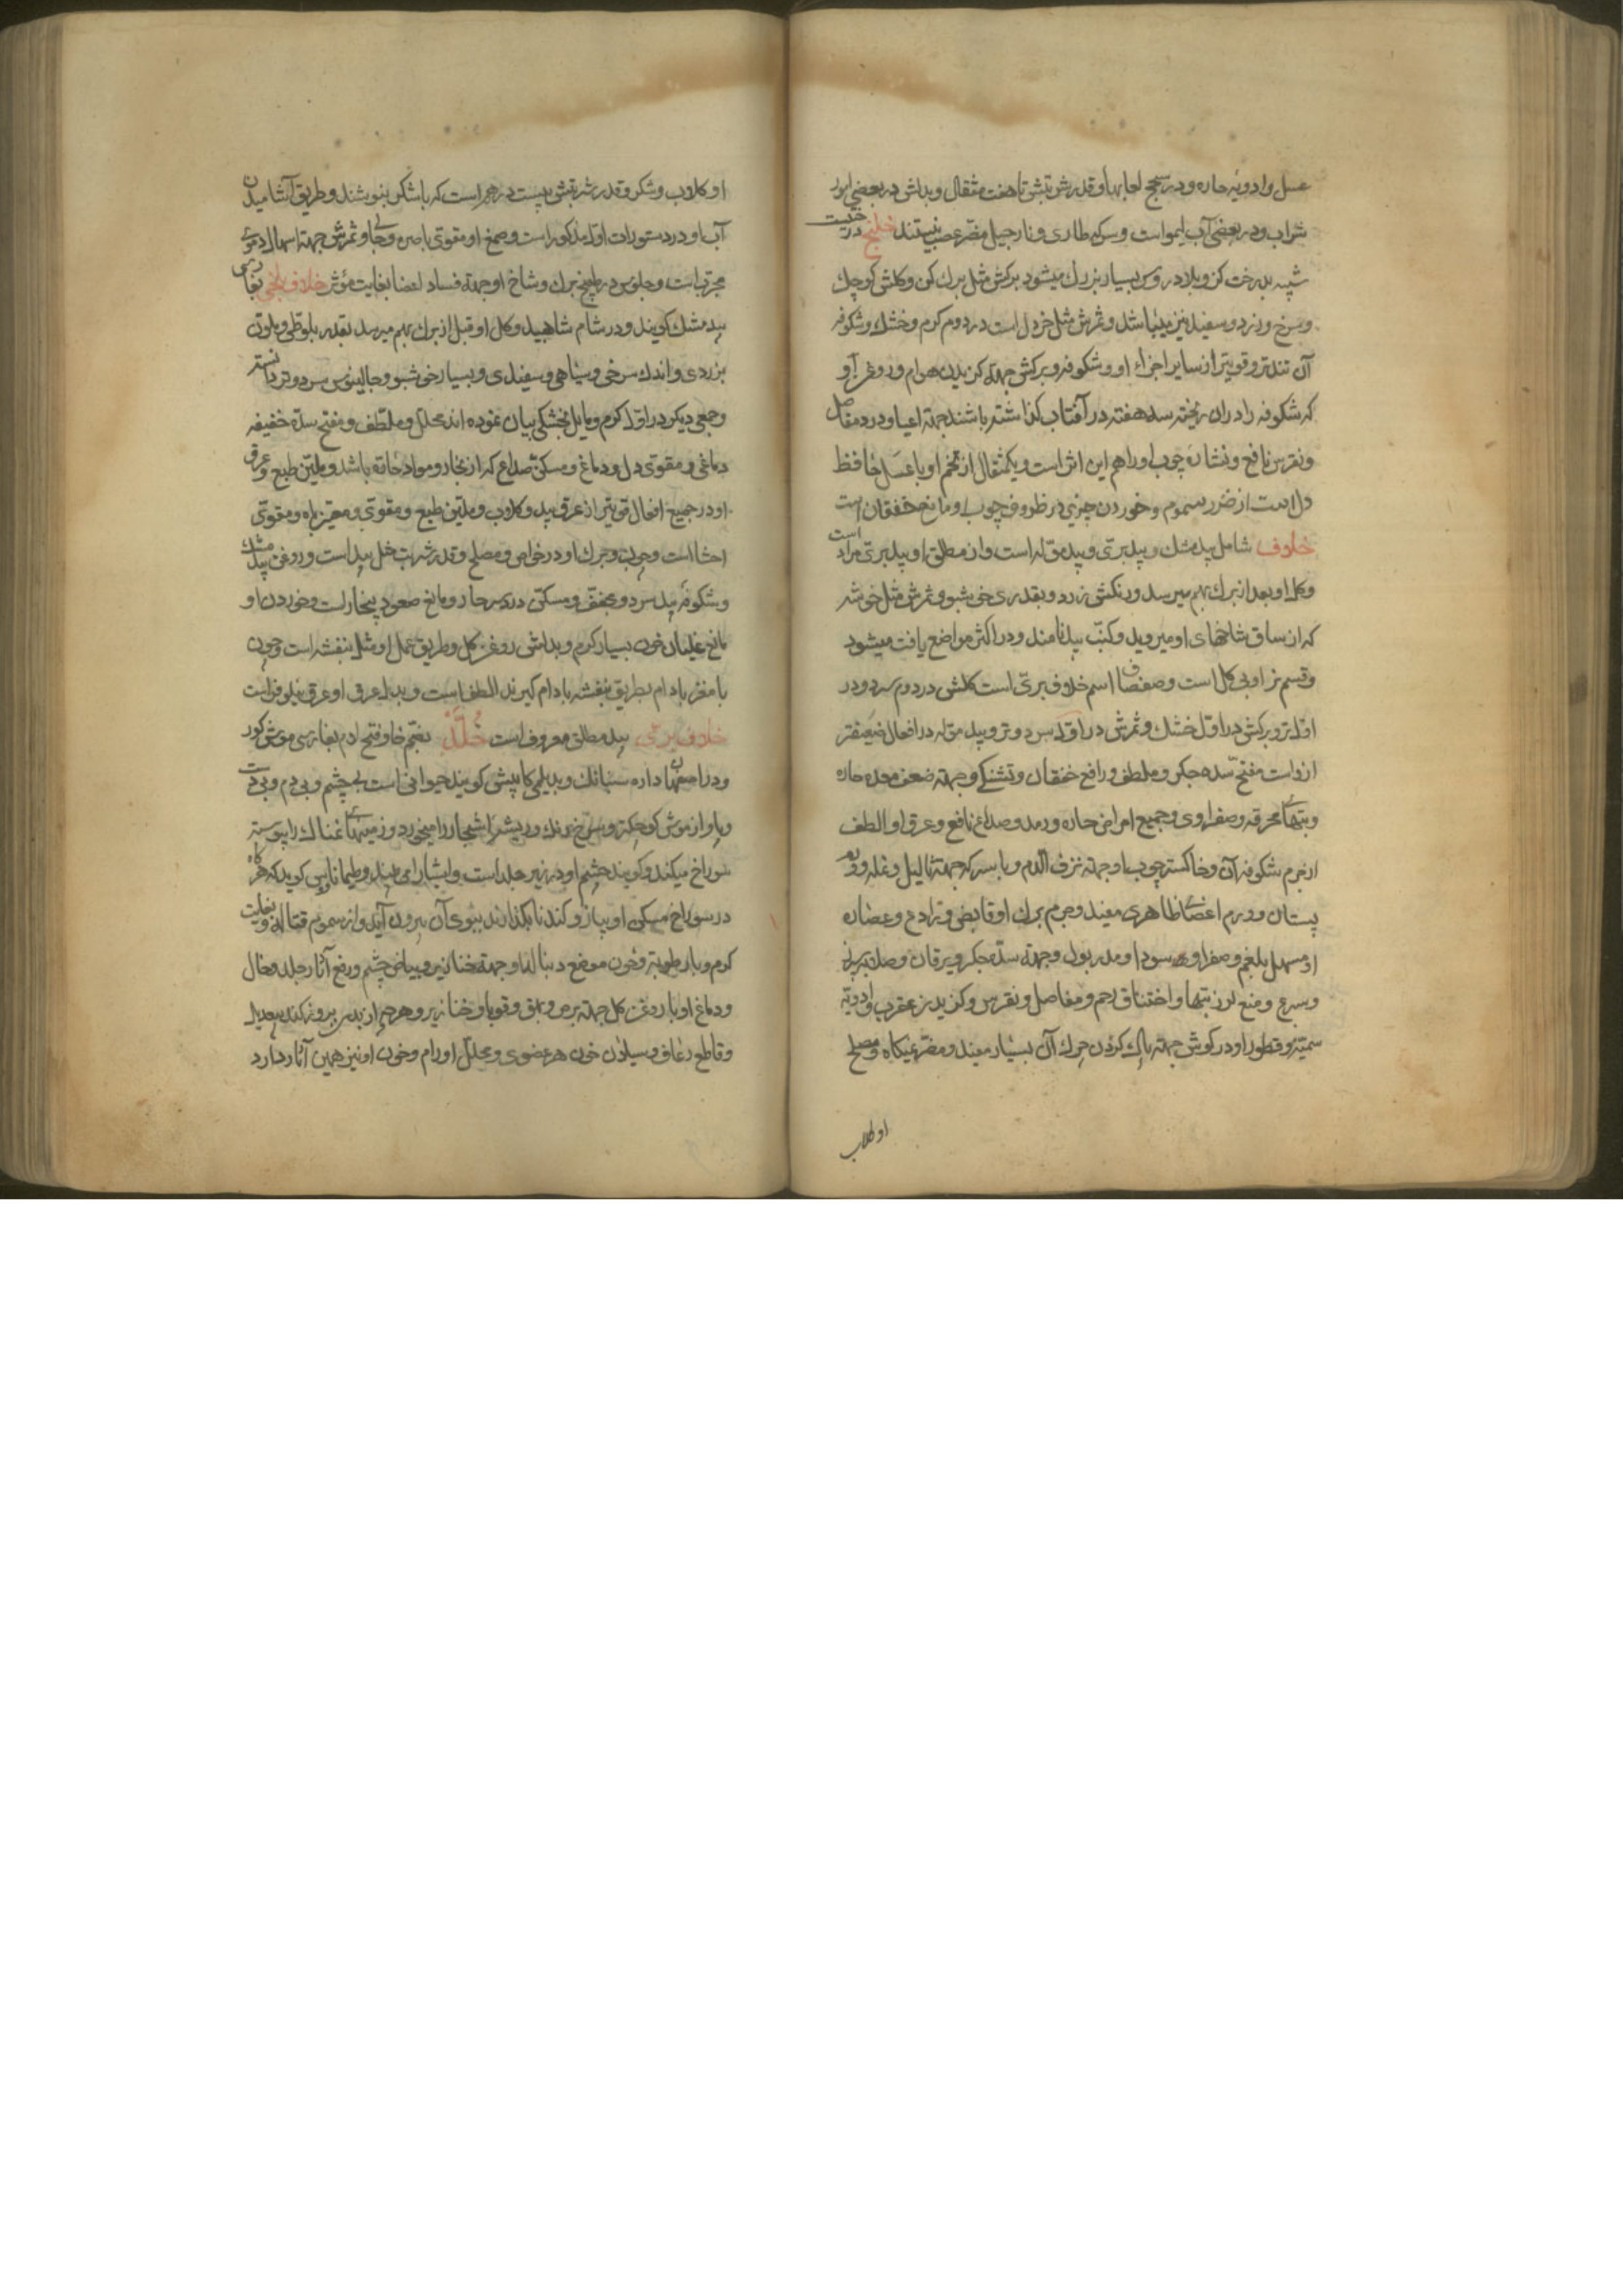 عسل و ادویه حاره و در سحج لعابها و قدر شربتش تا هفت مثقال و بدلش در بعضی امور
شراب و در بعضی آب لیمو است و سرکه طاری و نارجیل مضر عصب نیستند خلنج درختیست
شبیه بدرخت کز و بلاد روس بسیار بزرك میشود برکش مثل برك کز و کلش کوچك
و سرخ و زرد و سفید نیز میباشد و ثمرش مثل خردل است در دوم کرم و خشك و شکوفه
آن تندتر و قویتر از سایر اجزاء او و شکوفه و برکش جهة کزیدن هوام و روغن او
که شکوفه را در ان ریخته سه هفته در آفتاب کذاشته باشند جهة اعیا و درد مفاصل
و نقرس نافع و نشاره چوب او را هم این اثر است و یکمثقال از تخم او با عسل حافظ
دل است از ضرر سموم و خوردن چیزی در ظروف چوب او مانع خفقان است
خلاف شامل بید مشك و بید بری و بید موله است و از مطلق او بید بری مراد است
و کل او بعد از برك بهم میرسد و رنکش زرد و بقدری خوشبو و ثمرش مثل خوشه
که از ساق شاخهای او میروید و کنب بید نامند و در اکثر مواضع یافت میشود
و قسم نر او بی کل است و صفصاف اسم خلاف بری است کلش در دوم سرد و در
اول تر و برکش در اول خشك و ثمرش در اول سرد و تر و بید موله در افعال ضعیفتر
ازو است مفتح سده جکر و ملطف و رافع خفقان و تشنکی و جهة ضعف معده حاره
و تبهای محرقه و صفراوی و جمیع امراض حاره و رمد و صداع نافع و عرق او الطف
از جرم شکوفه آن و خاکستر چوب او جهة نزف الدم و با سرکه جهة ثالیل و نمله و ورم
پستان و ورم اعضای ظاهری مفید و جرم برك او قابض و رادع و عصاره
او مسهل بلغم و صفراوی سودا و مدر بول و جهة سده جکر و یرقان و صلابت سپرز
و سرع و منع لرز تبها و اختناق رحم و مفاصل و نقرس و کزیدن عقرب و ادویه
سمیه و قطور او در کوش جهة پاك کردن چرك آن بسیار مفید و مضر تهیکاه و مصلح
او کلاب
او کلاب و شکر و قدر شربتش بیست درهم است که با شکر بنوشند و طریق آشامیدن
آب او در دستورات اول مذکور است و صمغ او مقوی باصره و جالی و ثمرش جهة اسهال دموی
مجرب است و جلوس در طبیخ برك و شاخ او جهة فساد اعضا بغایت مؤثر خلاف بلخی بفارسی
بید مشك کویند و در شام شاهبید و کل او قبل از برك بهم میرسد بقدر بلوطی و ملون
بزردی و اندك سرخی و سیاهی و سفیدی و بسیار خوشبو و جالینوس سرد و تر دانسته
و جمعی دیکر در اول کرم و مایل بخشکی بیان نموده اند محلل و ملطف و مفتح سده خفیفه
دماغی و مقوی دل و دماغ و مسکن صداع که از بخار و مواد حاره باشد و ملین طبع و عرق
او در جمیع افعال قویتر از عرق بید و کلاب و ملین طبع و مقوی و محرك باه و مقوی
احشا است و چوب و برك او در خواص و مصلح و قدر شربت مثل بید است و روغن بید مشك
و شکوفه بید سرد و مجفف و مسکن درد سر حار و مانع صعود بخارات و خوردن او
مانع غلیان خون بسیار کرم و بدلش روغن کل و طریق عمل او مثل بنفشه است و چون
با مغز بادام بطریق بنفشه بادام کیرند الطف است و بدل عرق او عرق نیلوفر است
خلاف بری بید مطلق معروف است خلد بضم خا و فتح لام بفارسی موش کور
و در اصفهان داره سنبانك و بدیلمی کاپیش کویند حیوانی است بی چشم و بی دم و بی دست
و پا و از موش کوچکتر و سرخ رنك و ریشه اشجار را میخورد و زمینهای نمناك را پیوسته
سوراخ میکند و کویند چشم او در زیر جلد است و اشیا را می بیند و طیماناوس کوید که هرکاه
در سوراخ مسکن او پیاز و کندنا بکذارند ببوی آن بیرون آید و از سموم قتاله و بغایت
کرم و با رطوبة و خون موضع دنبال او جهة خنازیر و بیاض چشم و رفع آثار جلد فعال
و دماغ او با روغن کل جهة برص و بهق و قوبا و خنازیر و هر چه از بدن بروز کند بیعدیل
و قاطع رعاف و سیلان خون هر عضوی و محلل اورام و خون او نیز همین آثار دارد